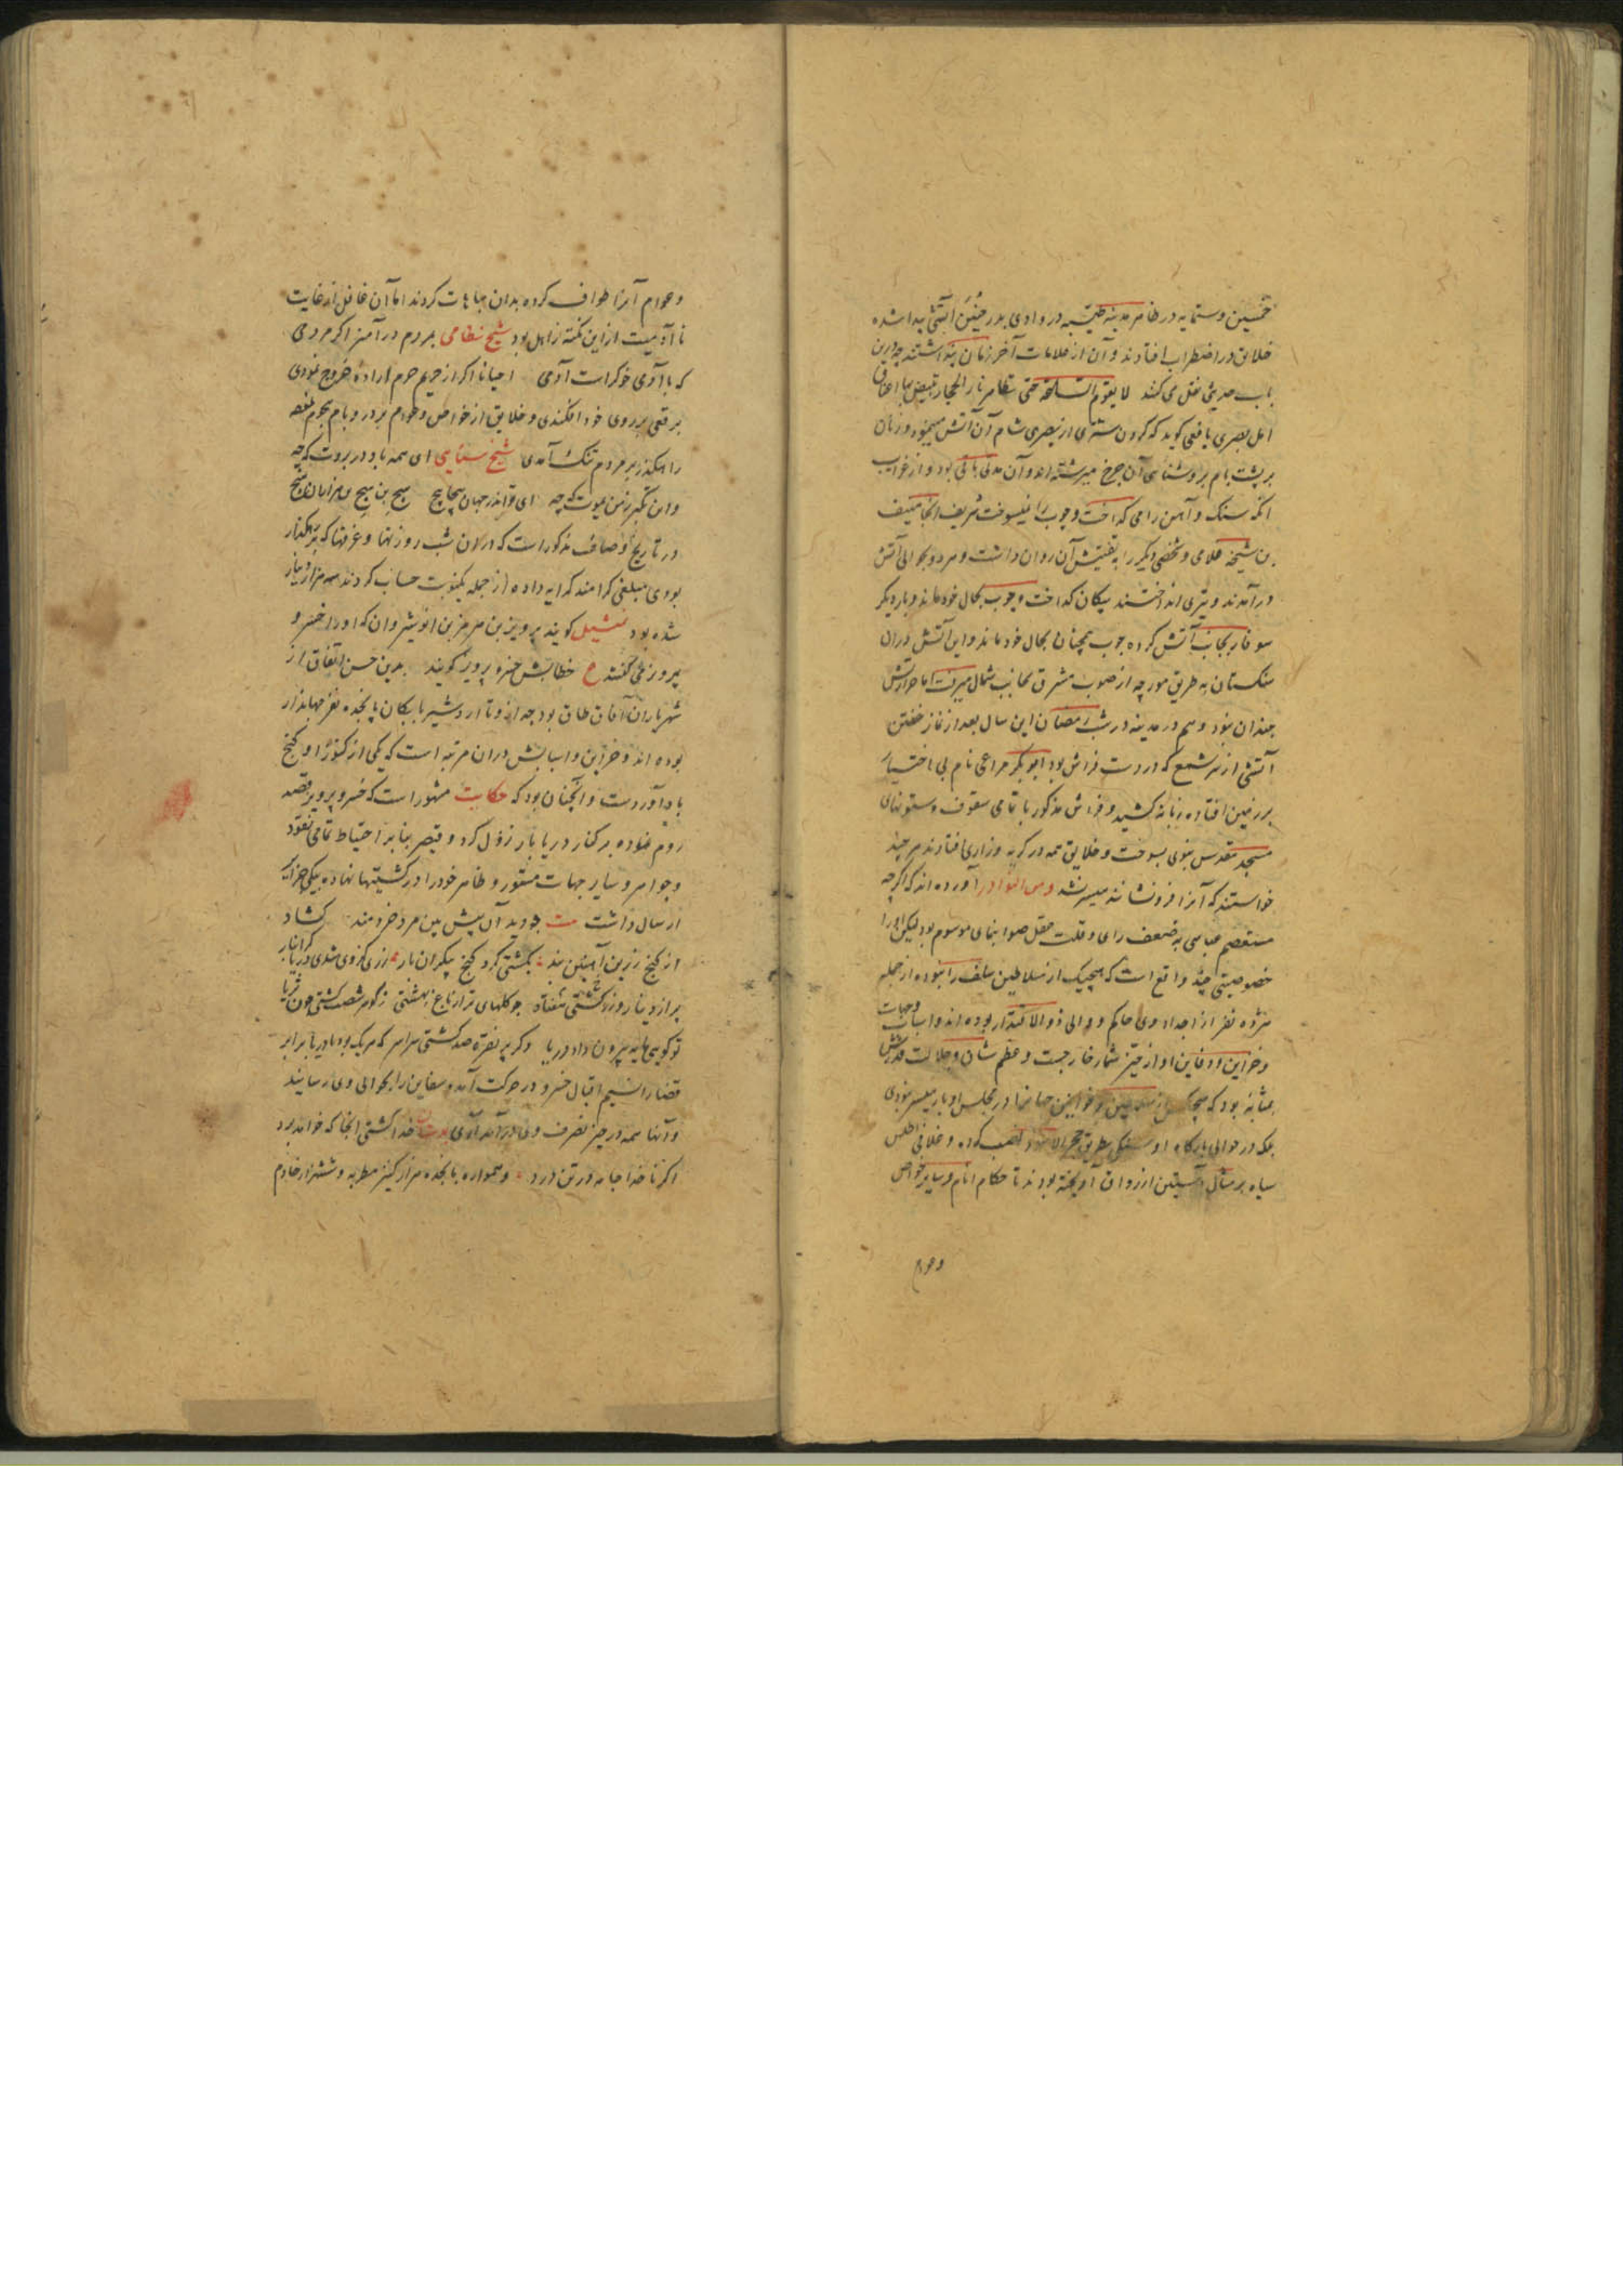 خمسین و ستمایه در ظاهر مدینه طیبه در وادی بدر حنین آتشی پیدا شده
خلایق در اضطراب افتادند و آن از علامات آخر زمان پنداشتند چه درین
باب حدیثی نقل می کنند لا یقوم الساعة حتی تظاهر نار الحجاز تبیض بها اعناق
اهل بصری یافعی کوید که کردن شتری از بصری شام آن آتش مینمود و زنان
بر پشت بام بروشنایی آن چرخ میرشته اند و آن مدتی باقی بود و از غرایب
انکه سنک و آهن را می کداخت و چوب را نمیسوخت شریف انجا منیف
بن شیخه غلامی و شخصی دیگر را به تفتیش آن روان داشت و هر دو بحوالی آتش
درآمدند و تیری انداختند پیکان کداخت و چوب بحال خود ماند و بار دیگر
سوفار بجانب آتش کرده چوب همچنان بحال خود ماند و این آتش دران
سنکستان به طریق مورچه از صوب مشرق بجانب شمال میرفت اما حرارتش
چندان نبود و هم در مدینه در شب رمضان این سال بعد از نماز خفتن
آتشی از سر شمع که در دست فراش بود ابو بکر مراغی نام بی اختیار
بر زمین افتاده زبانه کشید و فراش مذکور با تمامی سقوف و ستونهای
مسجد مقدس نبوی بسوخت و خلایق همه در کریه و زاری افتادند هر چند
خواستند که آنرا فرو نشانند میسر نشد ومن النوادر آورده اند که اگرچه
مستعصم عباسی به ضعف رای و قلت عقل صوابنمای موسوم بود لیکن او را
خصوصیتی چند واقع است که هیچیک از سلاطین سلف را نبوده از جمله
هژده نفر از اجداد وی حاکم و والی ذوالاقتدار بوده اند و اسباب وجهات
و خزاین و دفاین او از حیز شمار خارجست و عظم شان و جلالت قدرش
بمثابه بود که هیچکس از سلاطین و خواقین جهانرا در مجلس او بار میسر نبودی
بلکه در حوالی بارکاه او سنکی بطریق حجر الاسود نصب کرده و غلافی اطلس
سیاه بر مثال آستین از رواق آویخته بودند تا حکام انام و سایر خواص
وعوام
وعوام آنرا طواف کرده بدان مباهات کردند اما آن غافل از غایت
نا آدمیت از این نکته زاهل بود شیخ نظامی بمردم درآمیز اکر مردمی
که با آدمی خوکر است آدمی احیانا اکر از حریم حرم اراده خروج نمودی
برقعی بر روی خود افکندی و خلایق از خواص و عوام بر در و بام هجوم نموده
راهکذر بر مردم تنک آمدی شیخ سنایی ای همه باد در بروت که چه
واین تکبر زمن میوت که چه ای تو اندر جهان پیچاپیچ هیچ بن هیچ
در تاریخ وصاف مذکور است که دران شب روزنها و غرفها که بر رهکذار
بودی بمبلغی کرامند کرایه داده از جمله یکنوبت حساب کردند سه هزار دینار
شده بود تمثیل کویند پرویز بن هرمز بن انوشیروان که او را خسرو
پرویز می گفتند ع خطابش خسرو پرویز کویند بدین حسن اتفاق از
شهریاران آفاق طاق بود چه ازو تا اردشیر بابکان پانجده نفر جهاندار
بوده اند و خزاین و اسبابش دران مرتبه است که یکی از کنوز او کنج
بادآوردست و آنچنان بود که حکایت مشهور است که خسرو پرویز قصد
روم نموده بر کنار دریا بار نزول کرد و قیصر بنابر احتیاط تمامی نقود
وجواهر و سایر جهات مستور و ظاهر خود را در کشتیها نهاده بیکی جزایر
ارسال داشت بیت چو دید آن پیش بین مرد خردمند کشاد
از کنج زرین آهنین بند بکشتی کرد کنج بیکران بار
پر از دینار زر کشتی هفتاد چو کلهای تر از باغ بهشتی ز کوهر شصت کشتی چون ثریا
تو کویی مایه بیرون داد دریا دکر پر نقره صد کشتی سراسر که هر یک بود با دریا برابر
قضا را نسیم اقبال خسرو در حرکت آمد و سفاین را بحوالی وی رسانید
وآنها همه در حیز تصرف وی درآمد آری بیت خدا کشتی آنجا که خواهد برد
اکر ناخدا جامه در تن درد و همواره پانجده هزار کنیز مطربه و ششهزار خادم